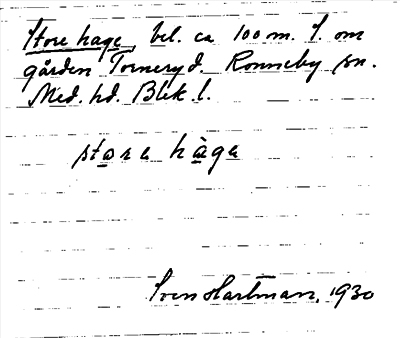 Store hage, bel. ca 100 m. S. om
gården Torneryd. Ronneby sn.
Med. hd. Blek. l.
stora hàga
Sven Hartman. 1930